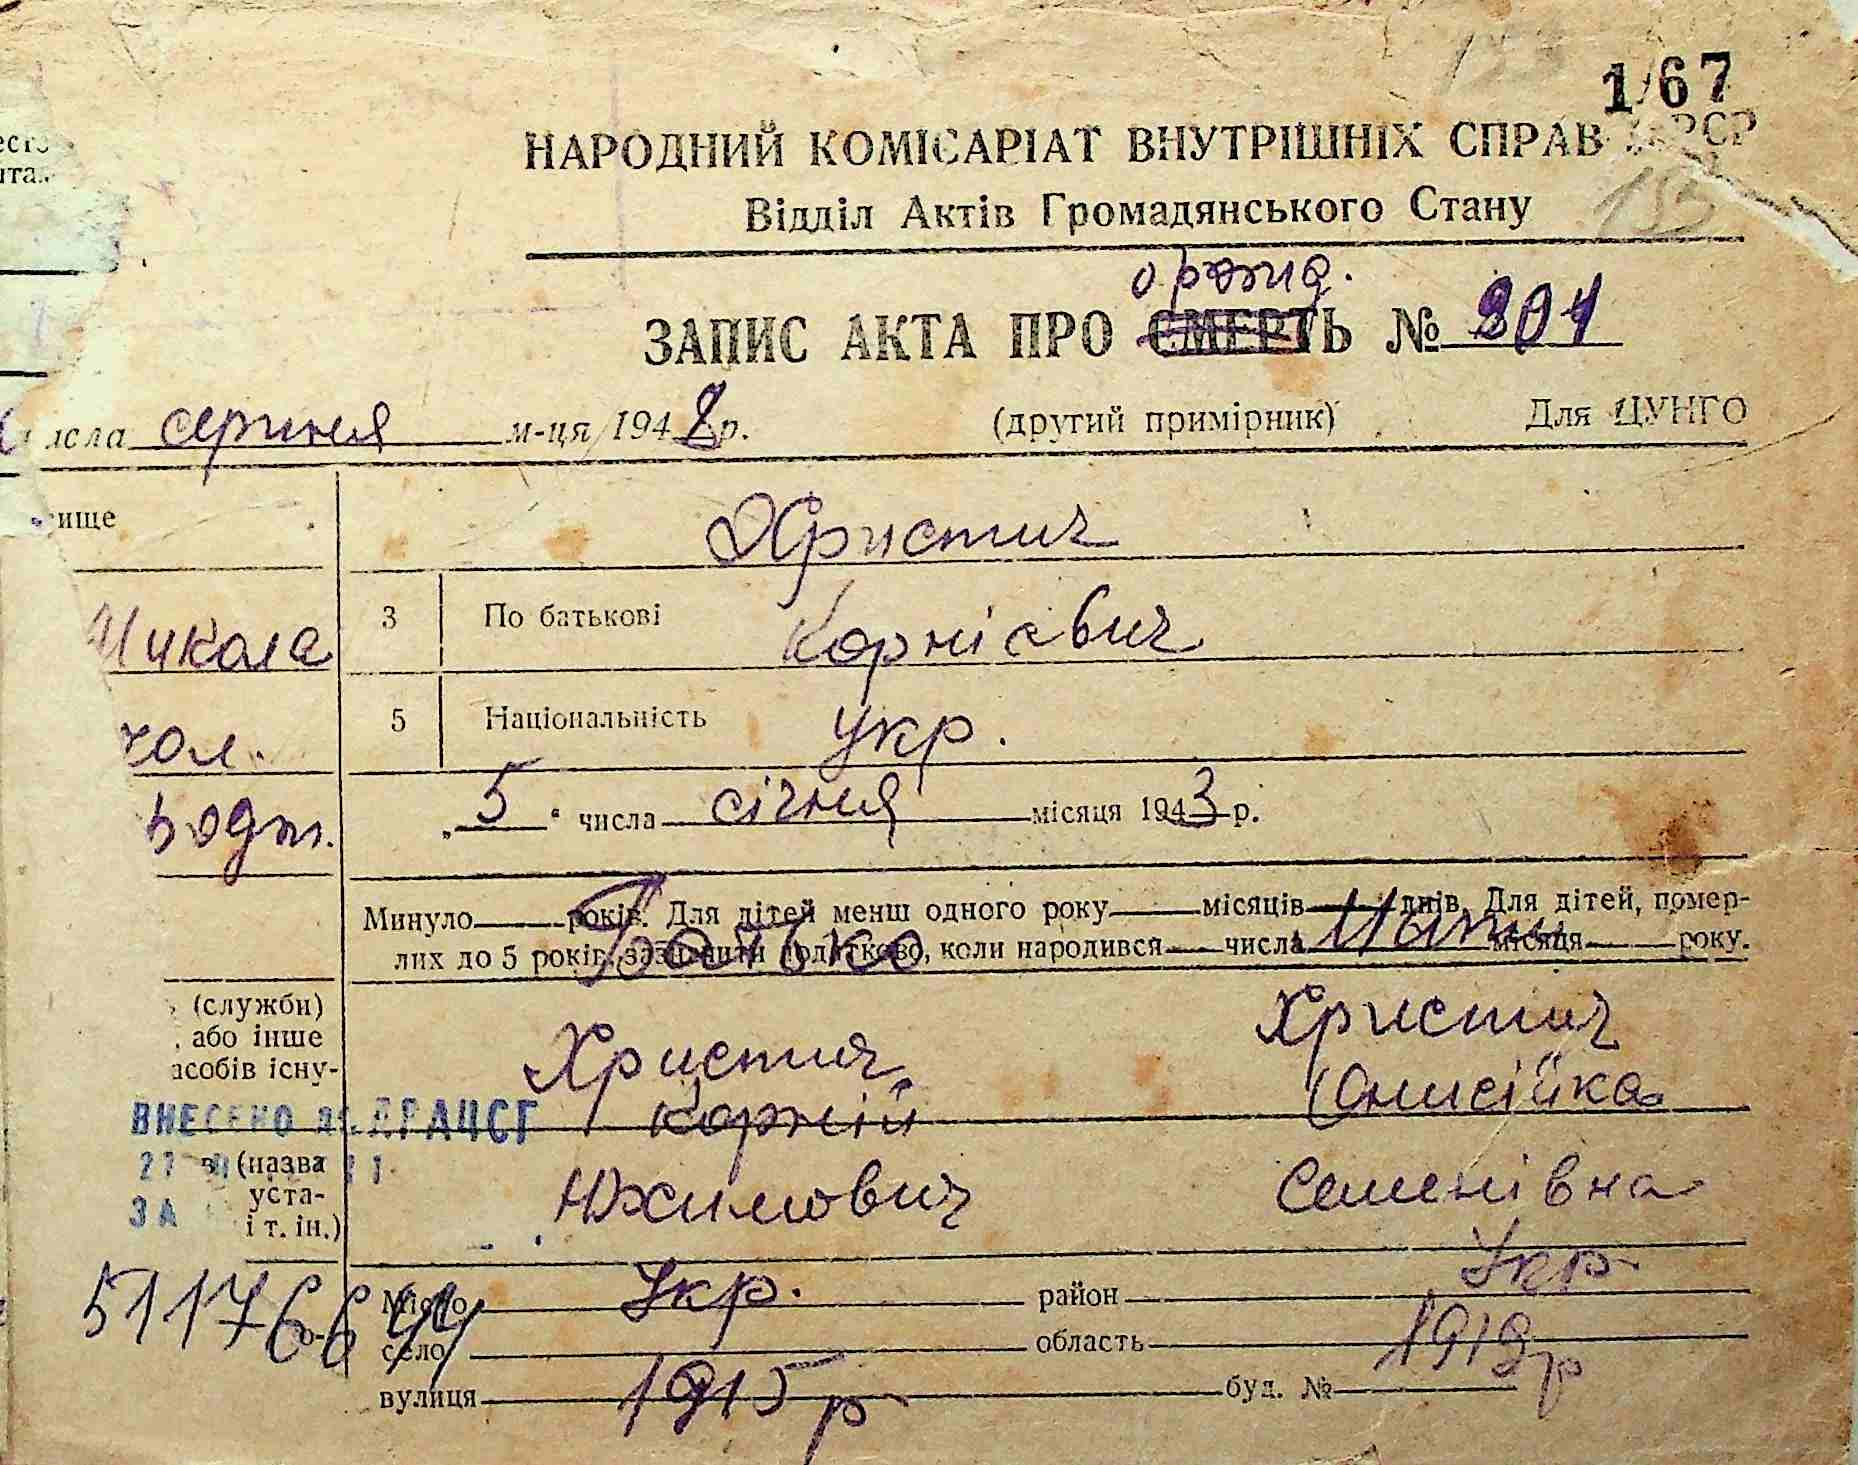 167
НАРОДНИЙ КОМІСАРІАТ ВНУТРІШНІХ СПРАВ УРСР
Відділ Актів Громадянського Стану
о рожд.
ЗАПИС АКТА ПРО СМЕРТЬ №
числа серпня м-ця 194 р.
(другий примірник)
Для ЦУНГО
ище
Христич
Микола
3 По батькові Корнієвич
чол.
5 Національність укр.
„5“ числа січня місяця 1943 р.
Минуло років. Для дітей менш одного року місяців днів. Для дітей, помер-
лих до 5 років, зазначити додатково, коли народився числа місяця року.
Батько
Мати
(служби)
або інше
асобів існу-
Христич
Корній
Юхимович
Христич
Онисійка
Семенівна
ВНЕСЕНО до ДРАЦСГ
(назва
уста-
і т. ін.)
ЗА
51176644
Місто Укр. район Укр
село область
вулиця 1915 р буд. №